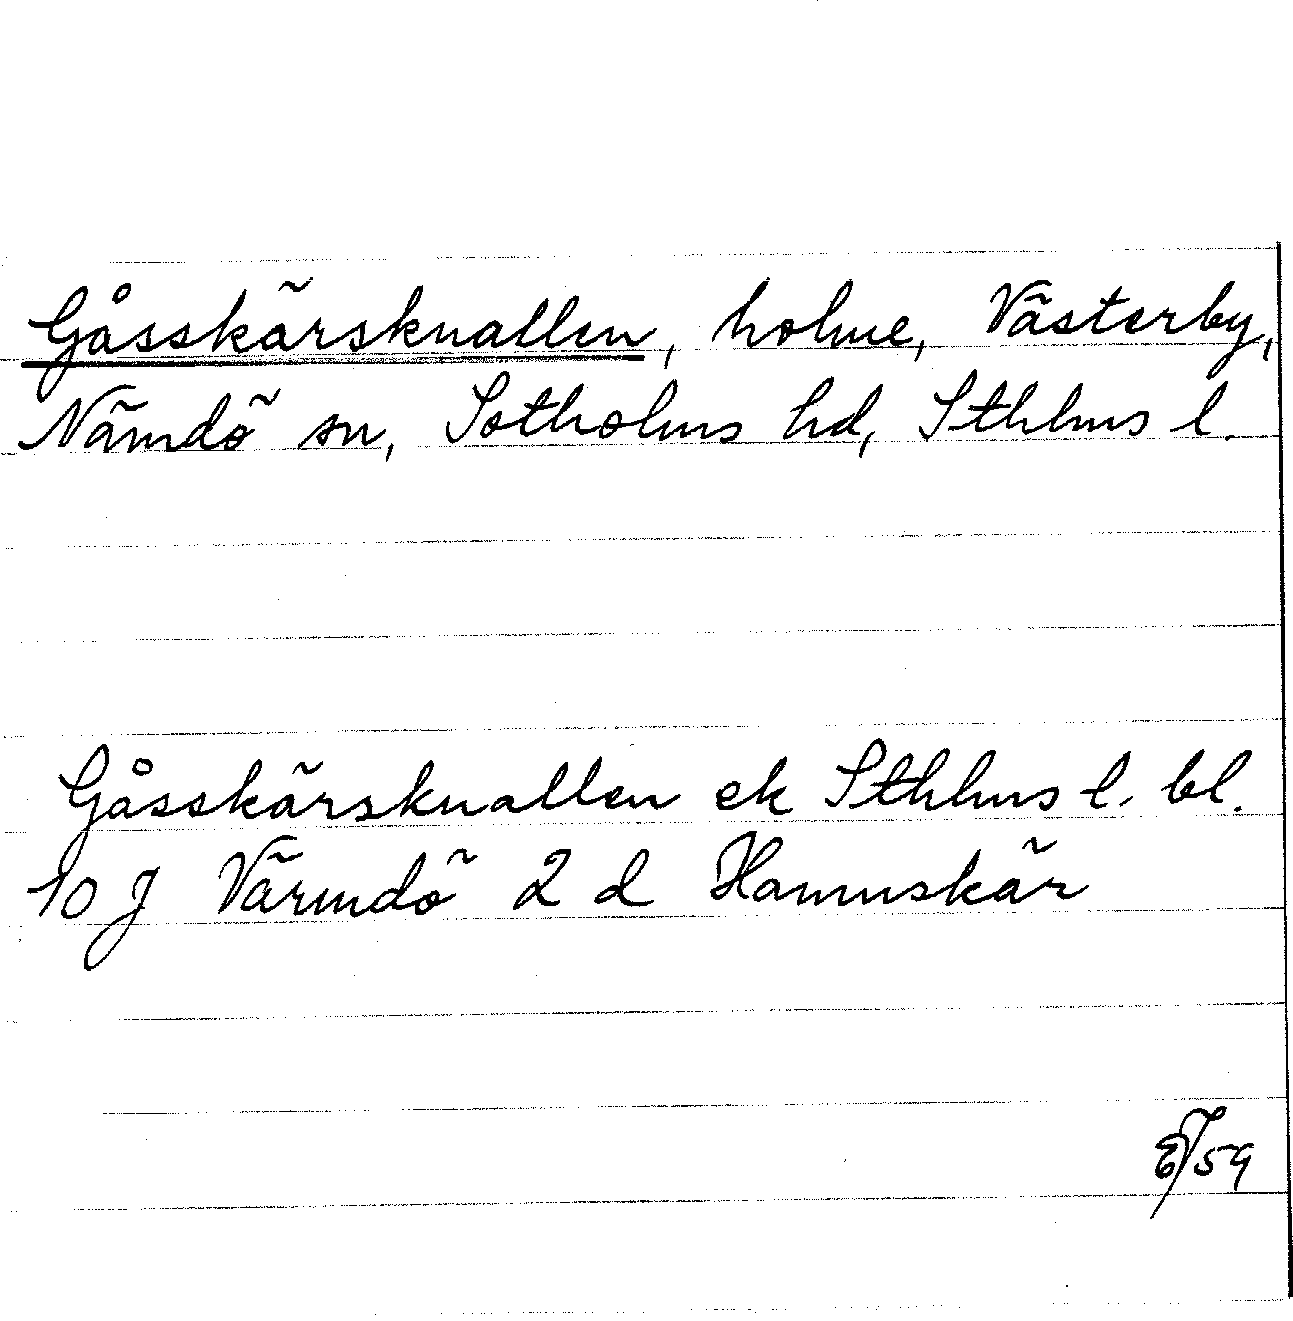 Gåsskärsknallen, holme, Västerby,
Nämdö sn, Sotholms hd, Sthlms l.
Gåsskärsknallen ek Sthlms l. bl.
10 J Värmdö 2 d Hamnskär
/59